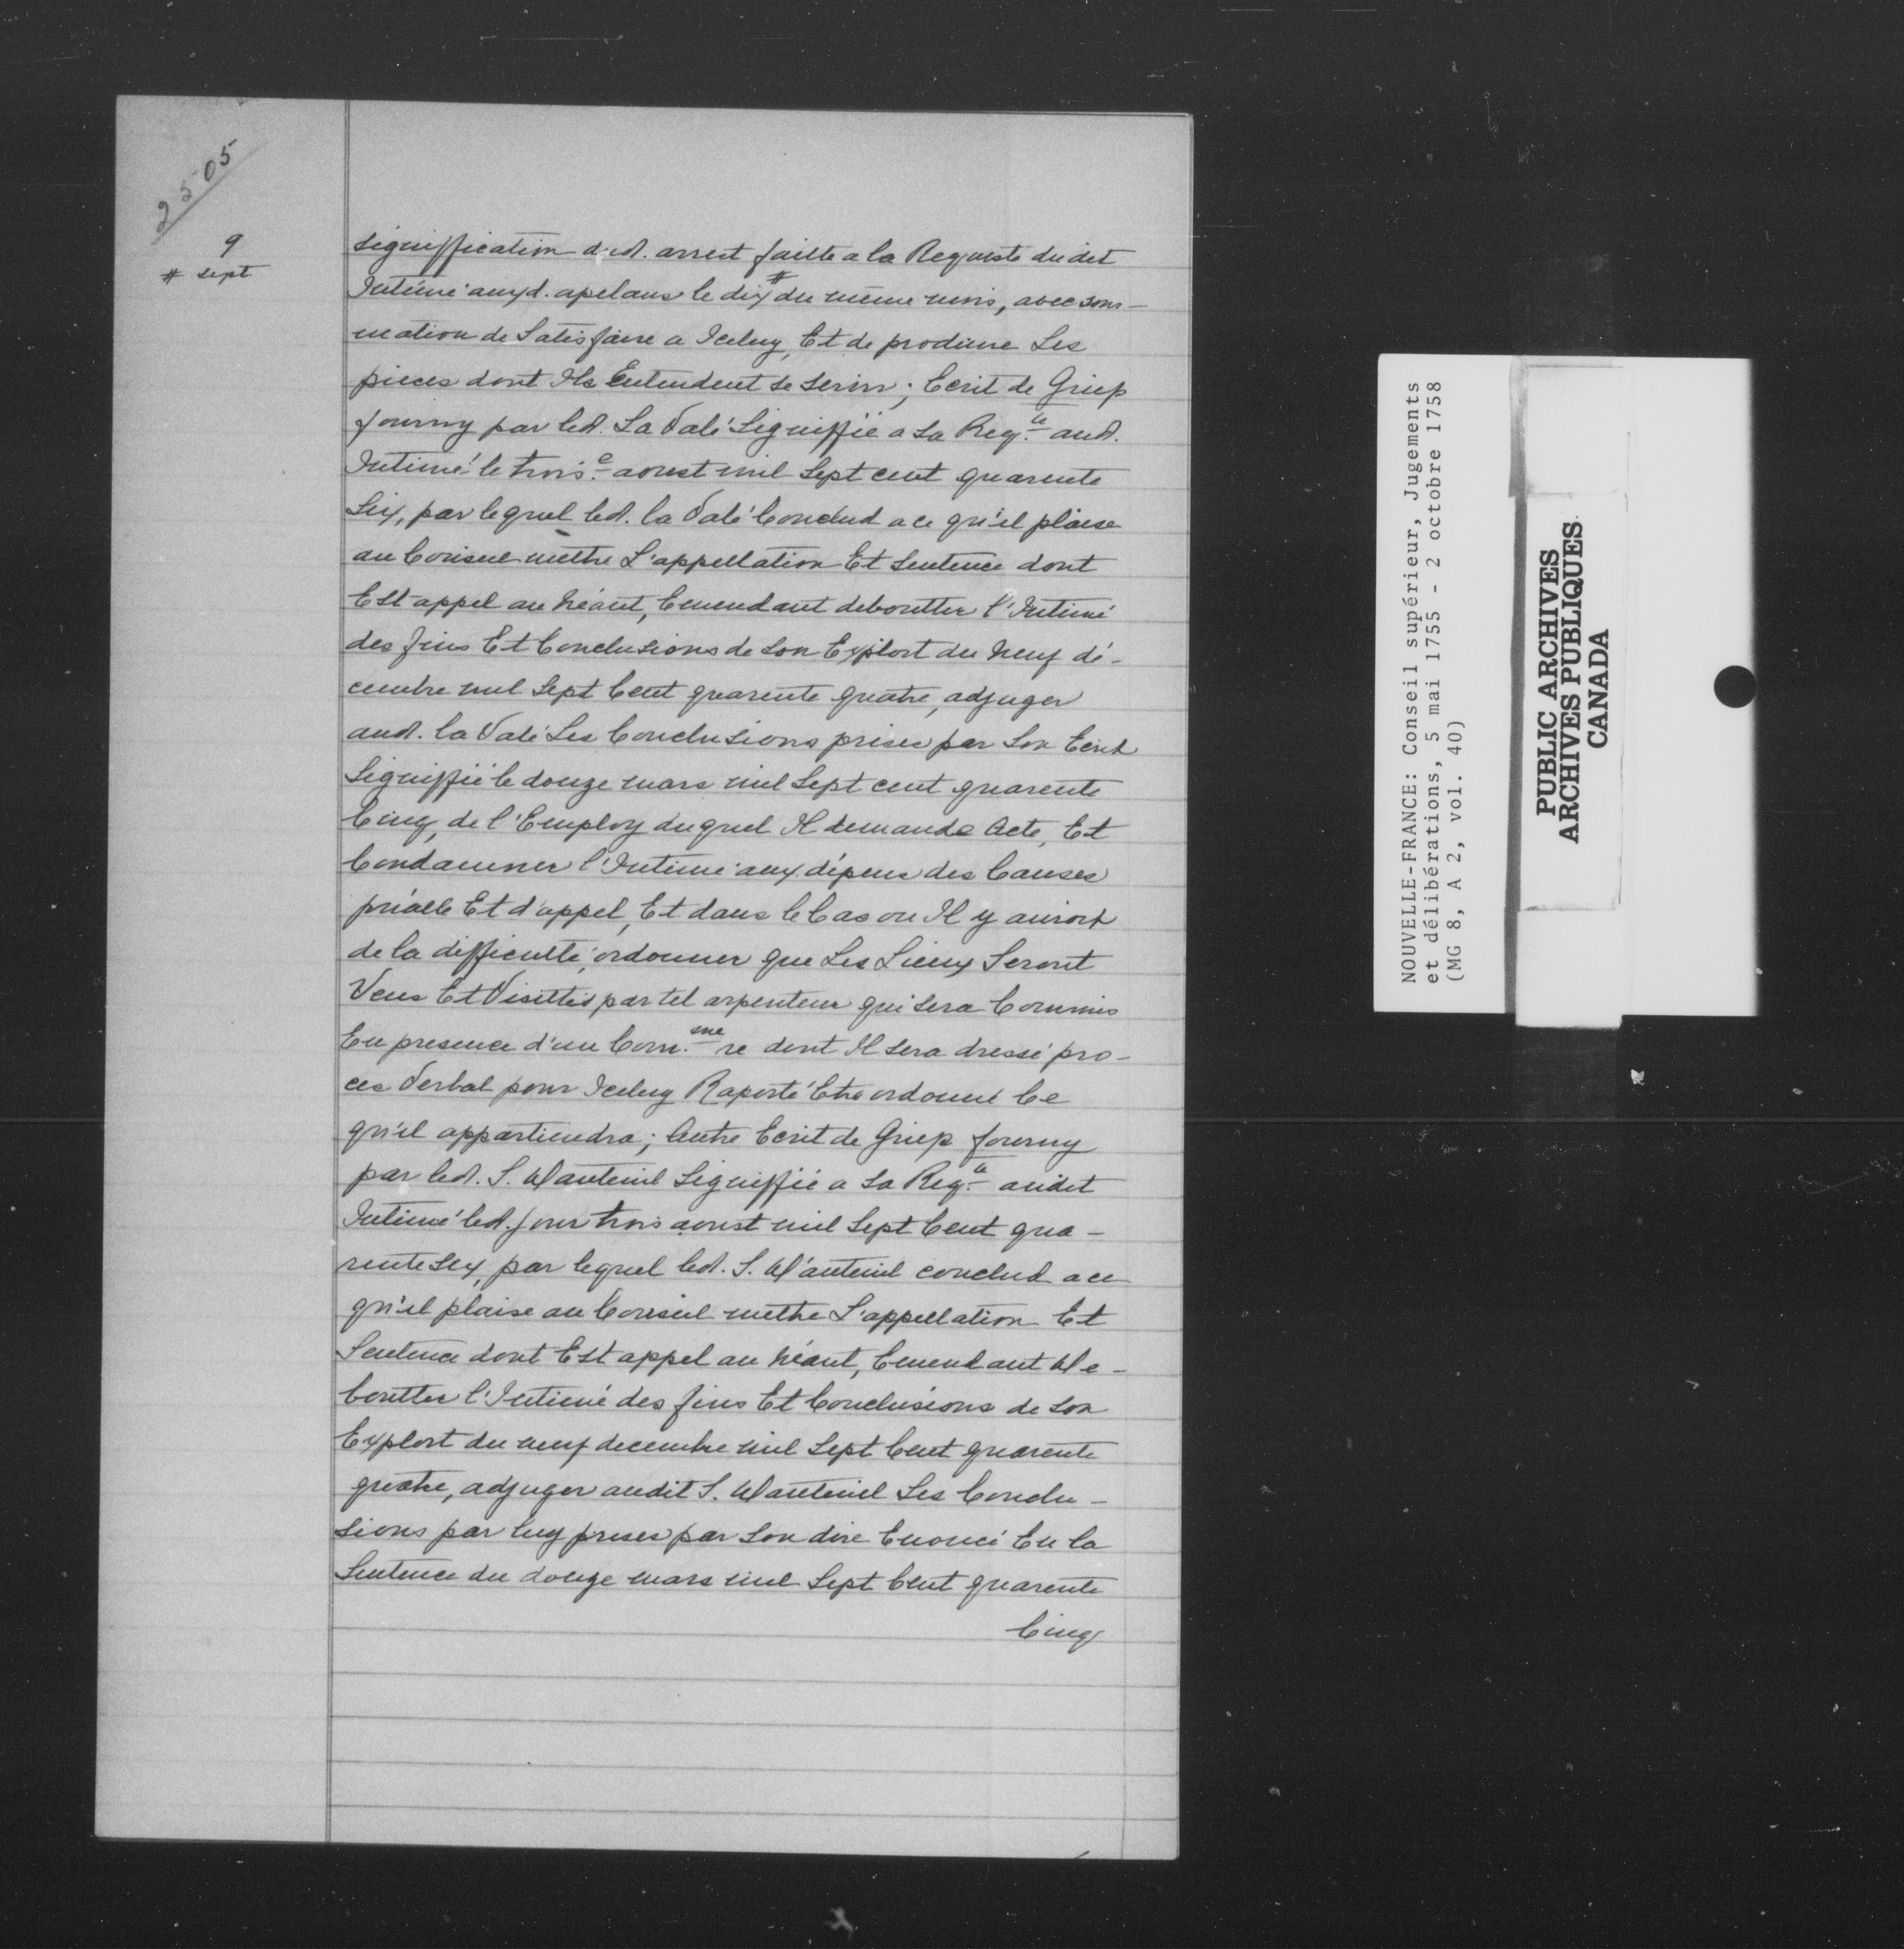 2505
9
# sept
Signiffication dud. arrest faitte a la Requeste dudit
Intimé auxd. apelans le dix # du même mois, avec som-
mation de Satisfaire a Iceluy, Et de produire Les
pieces dont Ils Entendent se servir; Ecrit de Griefs
fourny par led. La Valé Signiffié a Sa Reqte aud.
Intimé le trois.e aoust mil Sept cent quarente
Six, par lequel led. la Valé Conclud a ce qu'il plaise
au Conseil mettre L'appellation Et Sentence dont
Est appel au Néant, Emendant deboutter l'Intimé
des fins Et Conclusions de Son Exploit du Neuf dé-
cembre mil Sept Cent quarente quatre, adjuger
aud. la Valé Les Conclusions prises par Son Ecrit
Signiffié le douze mars mil Sept cent quarente
Cinq, de l'Employ duquel Il demande Acte, Et
Condamner l'Intimé aux dépens des Causes
pnalle Et d'appel, Et dans le Cas ou Il y auroit
de la difficulté, ordonner que Les Lieux Seront
Veus Et Visittés par tel arpenteur qui Sera Commis
En presence d'un Com.sre re dont Il Sera dressé pro-
ces Verbal pour Iceluy Raporté Etre ordonné Ce
qu'il appartiendra; Autre Ecrit de Griefs fourny
par led. S. Dauteuil Signiffié a Sa Reqte audit
Intimé led. jour trois aoust mil Sept Cent qua-
rente Six, par lequel led. S. D'auteuil conclud a ce
qu'il plaise au Conseil mettre L'appellation Et
Sentence dont Est appel au Néant, Emendant De-
boutter l'Intimé des fins Et Conclusions de Son
Exploit du neuf decembre mil Sept Cent quarente
quatre, adjuger audit S. Dauteuil Les Conclu-
sions par luy prises par Son dire Enoncé En la
Sentence du douze mars mil Sept Cent quarente
Cinq
NOUVELLE-FRANCE: Conseil supérieur, Jugements
et délibérations, 5 mai 1755 - 2 octobre 1758
(MG 8, A 2, vol. 40)
PUBLIC ARCHIVES
ARCHIVES PUBLIQUES
CANADA